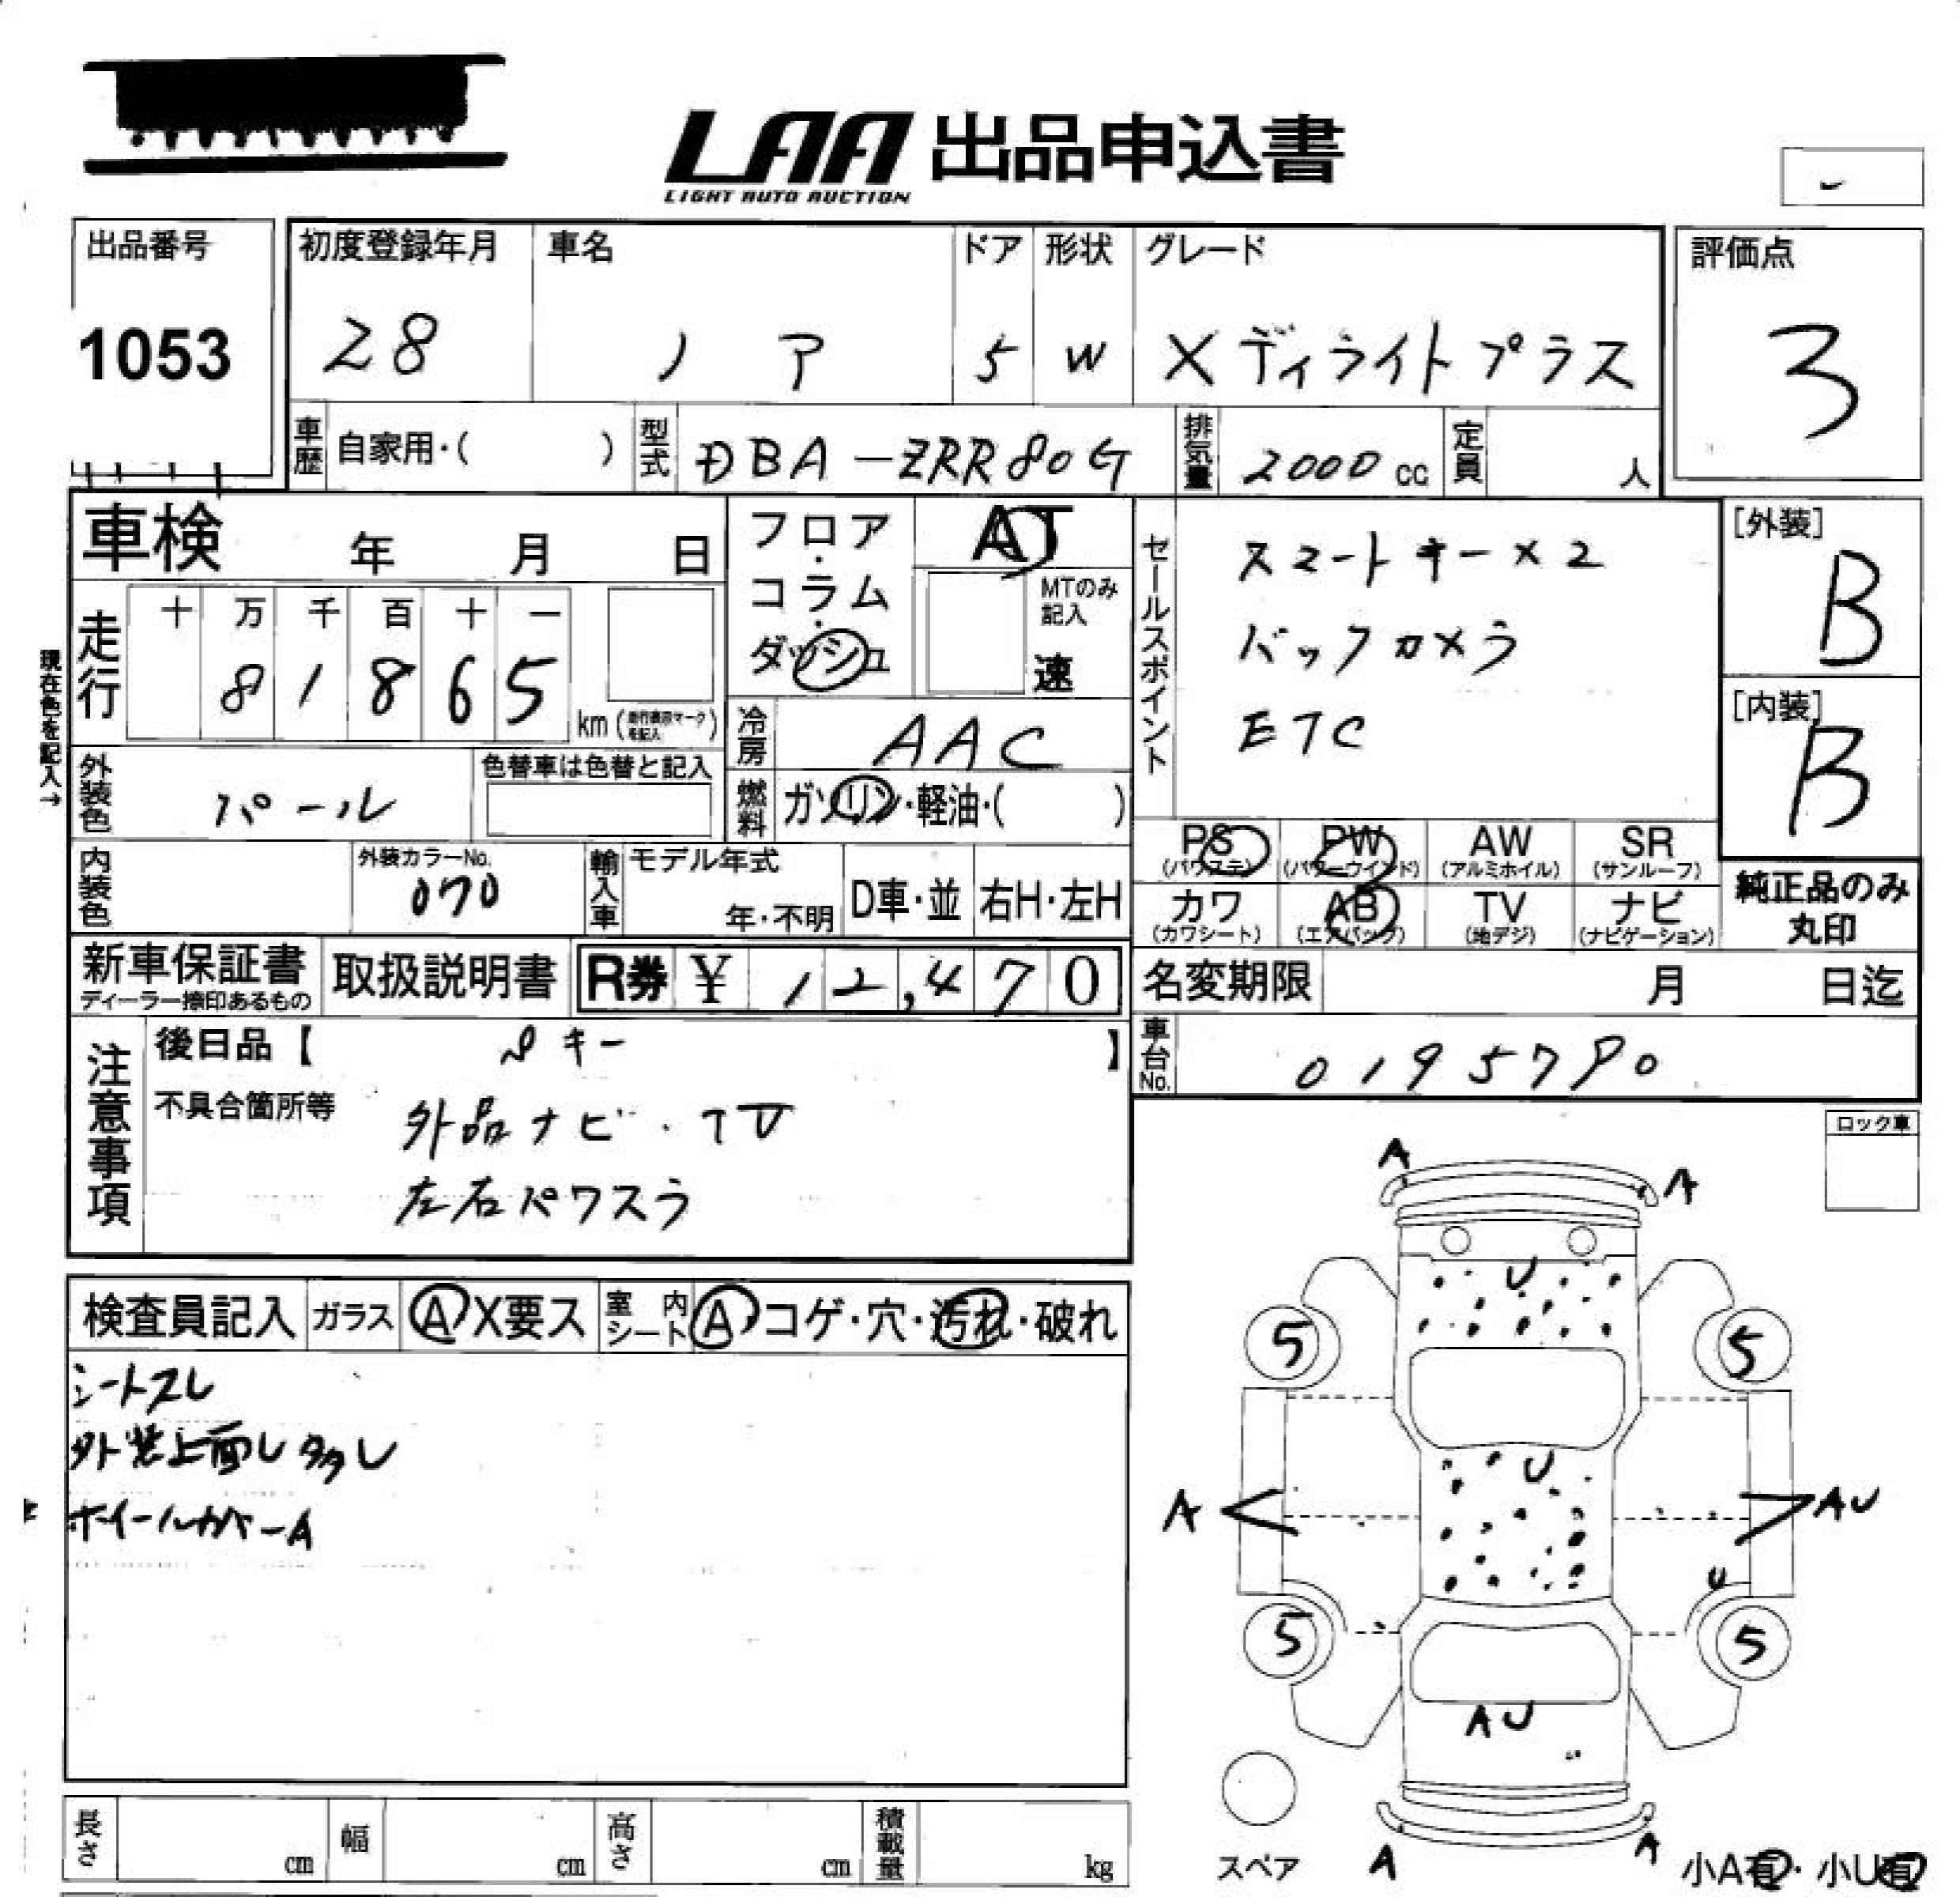 LAA 出品申込書
LIGHT AUTO AUCTION
出品番号
1053
初度登録年月
28
車名
ノア
ドア
5
形状
W
グレード
Xディライトプラス
評価点
3
車歴
自家用・( )
型式
DBA-ZRR80G
排気量
2000 cc
定員
人
車検 年 月 日
現在色を記入→
走行
十 万 千 百 十 一
8 1 8 6 5
km (走行表示マークを記入)
フロア
・
コラム
・
ダッシュ
AT
MTのみ記入
速
冷房
AAC
燃料
ガソリン・軽油・( )
セールスポイント
スマートキー×2
バックカメラ
ETC
[外装]
B
[内装]
B
外装色
パール
色替車は色替と記入
内装色
外装カラーNo.
070
輸入車
モデル年式
年・不明
D車・並
右H・左H
PS
(パワステ)
PW
(パワーウインド)
AW
(アルミホイル)
SR
(サンルーフ)
カワ
(カワシート)
AB
(エアバッグ)
TV
(地デジ)
ナビ
(ナビゲーション)
純正品のみ
丸印
新車保証書
ディーラー捺印あるもの
取扱説明書
R券 ¥ 12,470
名変期限 月 日迄
車台No.
0195790
注意事項
後日品【 キー 】
不具合箇所等
外品ナビ・TV
左右パワスラ
ロック車
検査員記入
ガラス
A X要ス
室内シート
A コゲ・穴・汚れ・破れ
シートスレ
外装上面U多多し
ホイールカバーA
A
A
U
5
5
U
A
AU
U
5
5
AU
A
A
スペア
小A有・小U有
長さ cm
幅 cm
高さ cm
積載量 kg